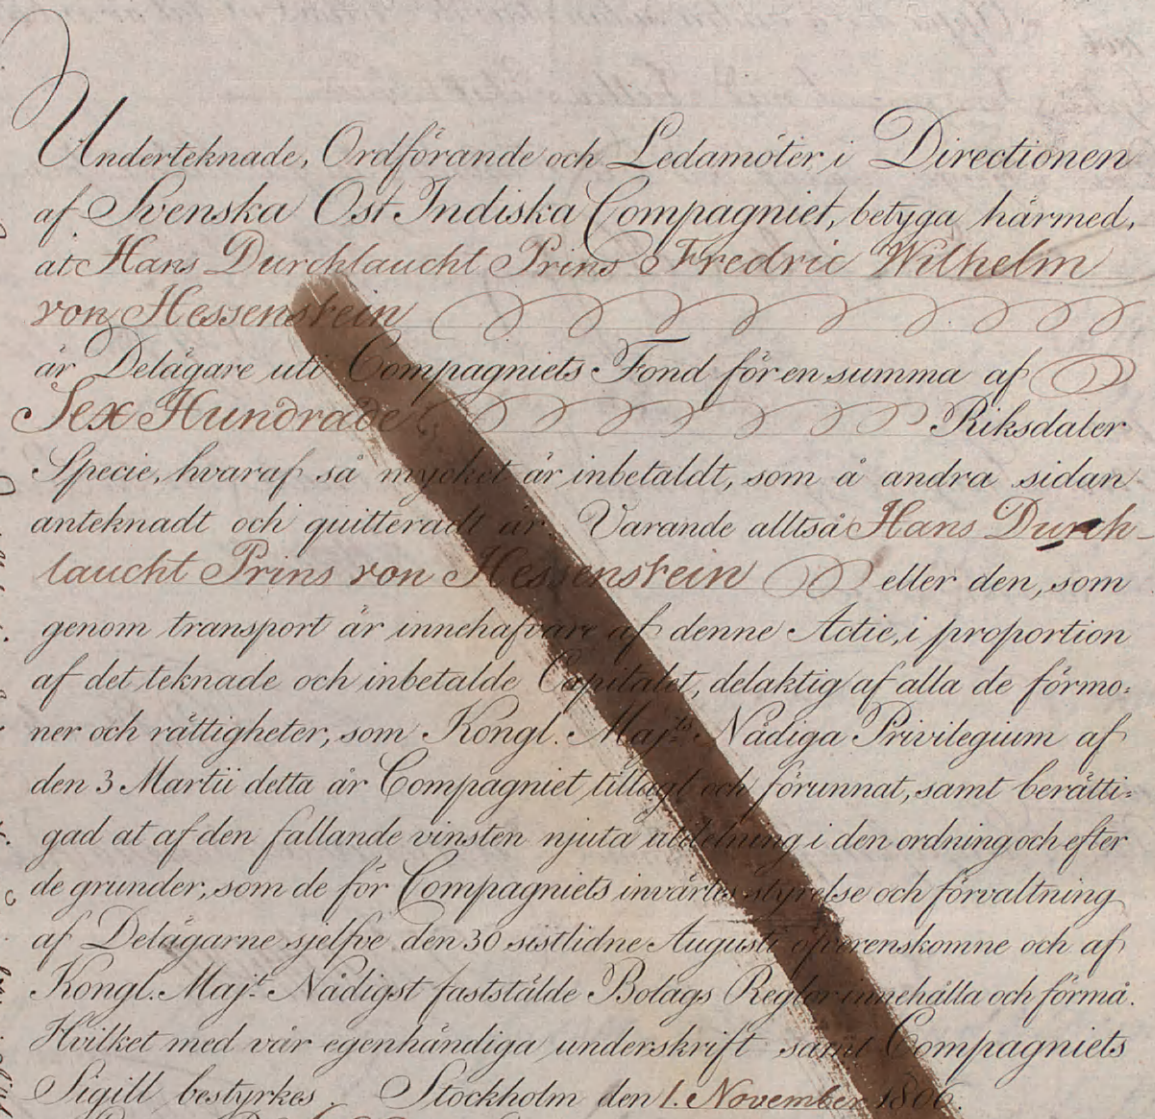 Underteknade, Ordförande och Ledamöter i Directionen
af Svenska Ost Indiska Compagniet, betyga härmed,
at Hans Durchlaucht Prins Fredric Wilhelm
von Hessenstein
är Delägare uti Compagniets Fond för en summa af
Sex Hundrade Riksdaler
Specie, hvaraf så mycket är inbetaldt, som å andra sidan
anteknadt och quitteradt är. Varande alltså Hans Durch-
laucht Prins von Hessenstein eller den, som
genom transport är innehafvare af denne Actie, i proportion
af det teknade och inbetalde Capitalet, delaktig af alla de förmo:
ner och rättigheter, som Kongl. Maj:ts Nådiga Privilegium af
den 3 Martii detta år Compagniet tillagt och förunnat, samt berätti:
gad at af den fallande vinsten njuta utdelning i den ordning och efter
de grunder, som de för Compagniets invärtes styrelse och förvaltning
af Delägarne sjelfve den 30 sistlidne Augusti öfverenskomne och af
Kongl. Maj:t Nådigst fastställde Bolags Reglor innehålla och förmå.
Hvilket med vår egenhändiga underskrift samt Compagniets
Sigill bestyrkes. Stockholm den 1. November 1806.